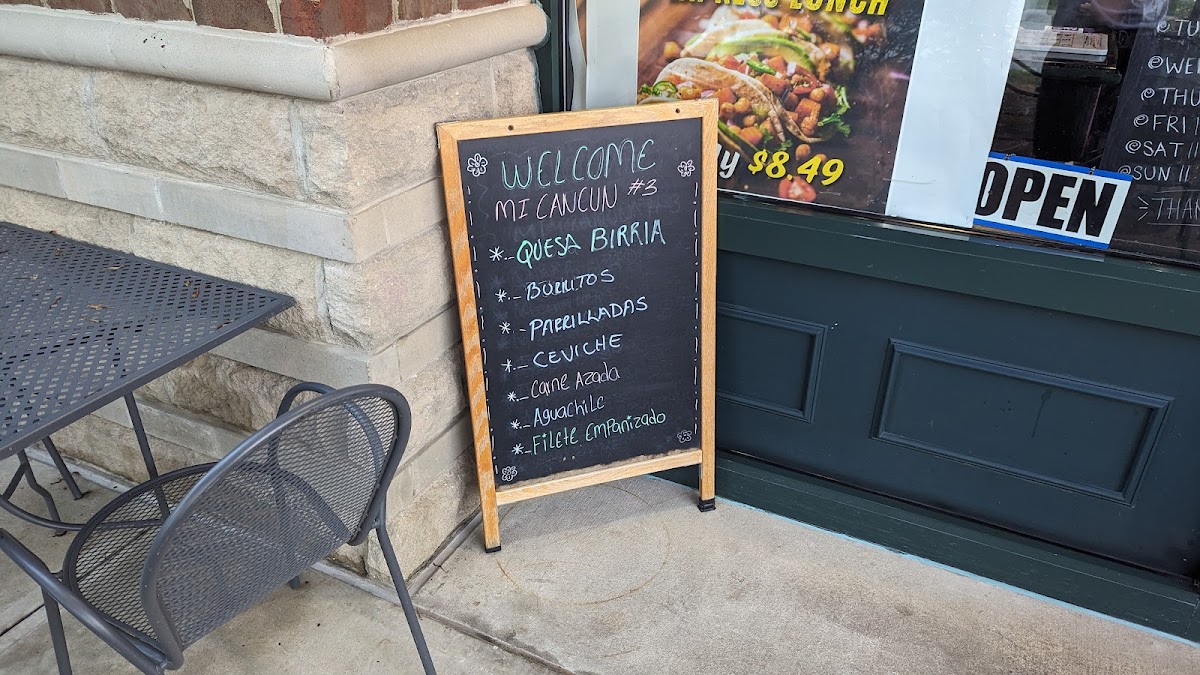 WELCOME
MI CANCUN #3
*.- QUESA BIRRIA
*.- BURRITOS
*.- PARRILLADAS
*.- CEVICHE
*.- Carne Azada
*.- Aguachile
*.- Filete Empanizado
LUNCH
$8.49
OPEN
TU
WE
THU
FRI 1
SAT 11
SUN 11
THAN